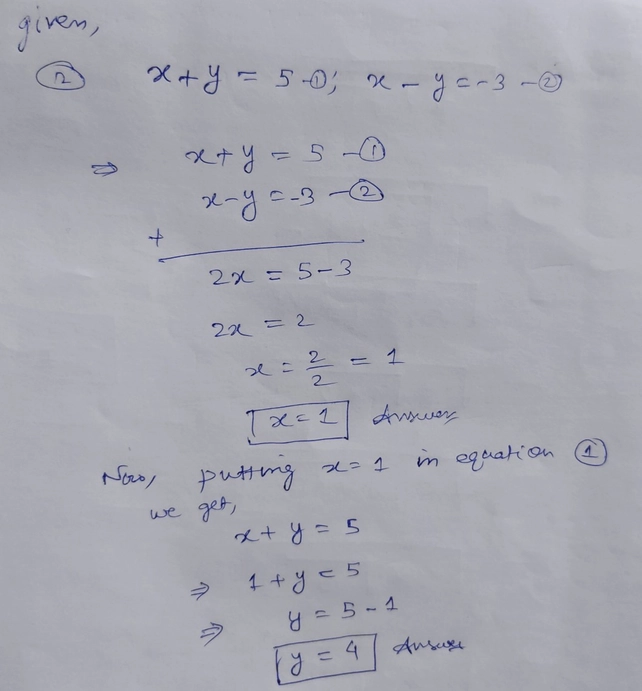 given,
② x + y = 5 -①; x - y = -3 -②
⇒ x + y = 5 -①
x - y = -3 -②
+
2x = 5 - 3
2x = 2
x = 2/2 = 1
x = 1 Answer
Now, putting x = 1 in equation ①
we get,
x + y = 5
⇒ 1 + y = 5
⇒ y = 5 - 1
y = 4 Answer